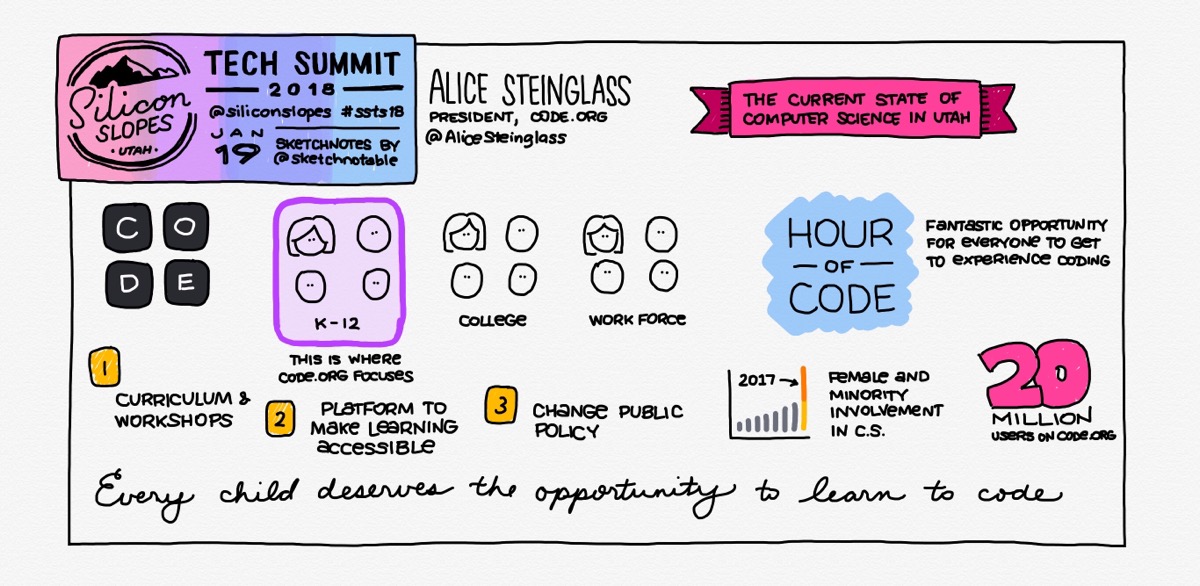 Silicon
SLOPES
• UTAH •
TECH SUMMIT
2018
@siliconslopes #ssts18
JAN
19
SKETCHNOTES BY
@sketchnotable
ALICE STEINGLASS
PRESIDENT, CODE.ORG
@AliceSteinglass
THE CURRENT STATE OF
COMPUTER SCIENCE IN UTAH
C O
D E
K-12
THIS IS WHERE
CODE.ORG FOCUSES
COLLEGE
WORK FORCE
HOUR
— OF —
CODE
FANTASTIC OPPORTUNITY
FOR EVERYONE TO GET
TO EXPERIENCE CODING
1
CURRICULUM &
WORKSHOPS
2
PLATFORM TO
MAKE LEARNING
ACCESSIBLE
3
CHANGE PUBLIC
POLICY
2017
FEMALE AND
MINORITY
INVOLVEMENT
IN C.S.
20
MILLION
USERS ON CODE.ORG
Every child deserves the opportunity to learn to code